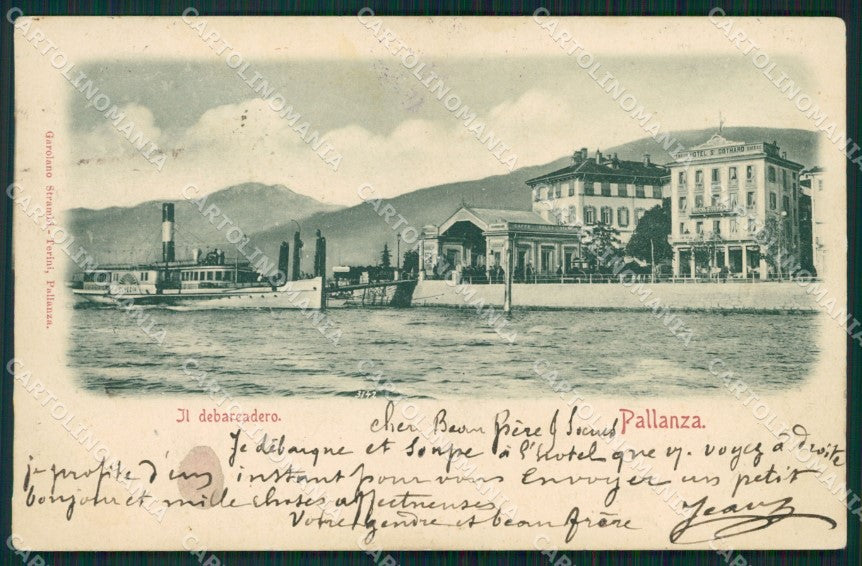 CARTOLINOMANIA
HOTEL S. GOTHARD
Garolano Strambi - Torini, Pallanza.
3147
Il debarcadero.
Pallanza.
cher Beau père & Sœurs
Je débarque et soupe à l'hotel que v. voyez à droite
je profite d'un instant pour vous envoyer un petit
bonjour et mille choses affectueuses
Votre gendre et beau frère Jean